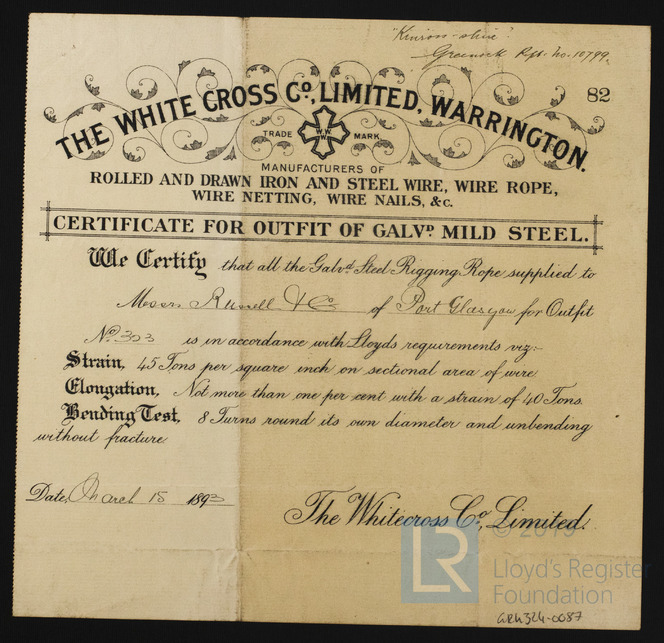 "Kinross-shire".
Greenock Rpt. No. 10799.
82
THE WHITE CROSS Co., LIMITED, WARRINGTON.
TRADE W.W. MARK
MANUFACTURERS OF
ROLLED AND DRAWN IRON AND STEEL WIRE, WIRE ROPE,
WIRE NETTING, WIRE NAILS, &c.
CERTIFICATE FOR OUTFIT OF GALVD MILD STEEL.
We Certify that all the Galvd Steel Rigging Rope supplied to
Messrs Russell & Co of Port Glasgow for Outfit
No 303 is in accordance with Lloyds requirements viz:-
Strain, 45 Tons per square inch on sectional area of wire
Elongation, Not more than one per cent with a strain of 40 Tons.
Bending Test, 8 Turns round its own diameter and unbending
without fracture
Date, March 15 1893
The Whitecross Co., Limited.
© 2019
LR
Lloyd's Register
Foundation
GRK324-0087